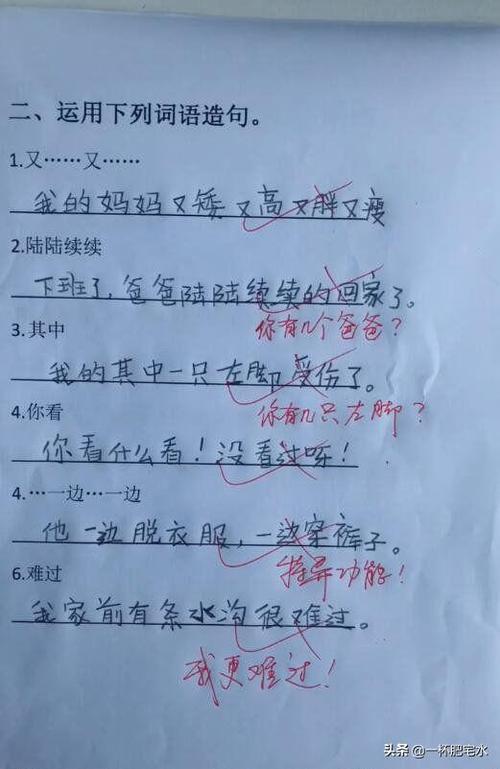 二、运用下列词语造句。
1.又……又……
我的妈妈又矮又高又胖又瘦
2.陆陆续续
下班了,爸爸陆陆续续的回家了。
你有几个爸爸?
3.其中
我的其中一只左脚受伤了。
你有几只左脚?
4.你看
你看什么看!没看过呀!
4.…一边…一边
他一边脱衣服,一边穿裤子。
特异功能!
6.难过
我家前有条水沟很难过。
我更难过!
头条 @一杯肥宅水